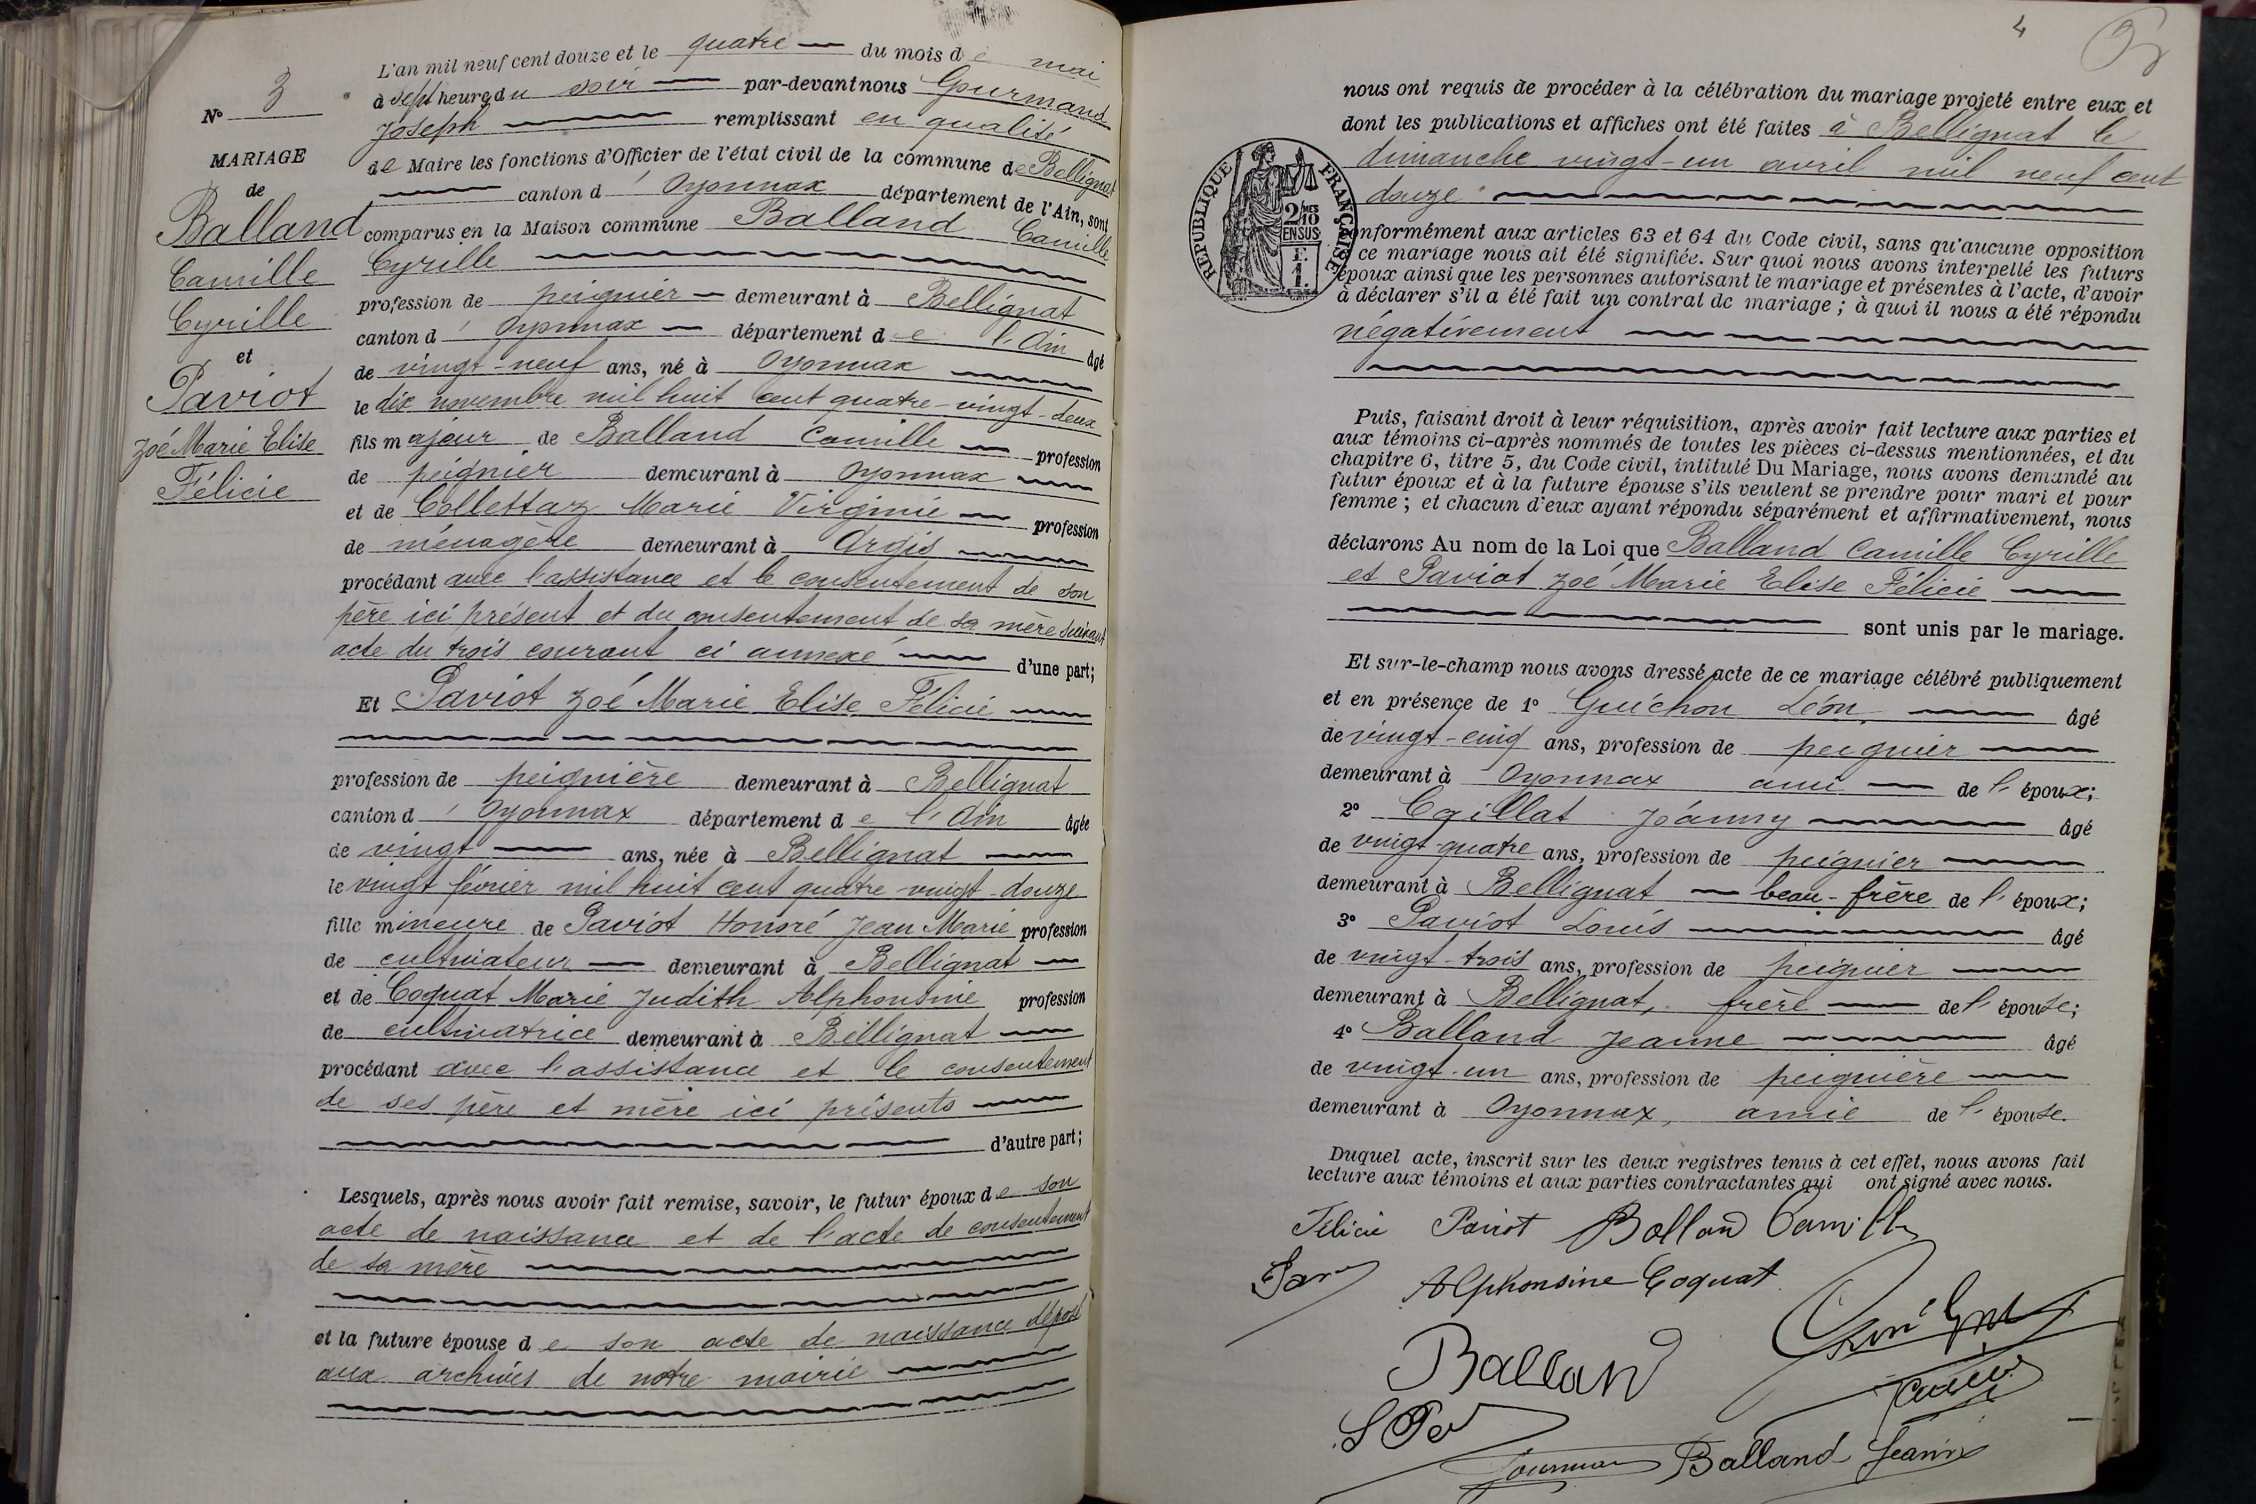 L'an mil neuf cent douze et le quatre du mois de mai
à sept heures du soir par-devant nous Gourmand
Joseph remplissant en qualité
de Maire les fonctions d'Officier de l'état civil de la commune de Bellignat
canton d' Oyonnax département de l'Ain, sont
comparus en la Maison commune Balland Camille
Cyrille
profession de peignier demeurant à Bellignat
canton d' Oyonnax département de l'Ain âgé
de vingt-neuf ans, né à Oyonnax
le dix novembre mil huit cent quatre-vingt-deux
fils majeur de Balland Camille profession
de peignier demeurant à Oyonnax
et de Collettaz Marie Virginie profession
de ménagère demeurant à Argis
procédant avec l'assistance et le consentement de son
père ici présent et du consentement de sa mère suivant
acte du trois courant ci annexé d'une part;
Et Paviot Zoé Marie Elise Félicie
profession de peignière demeurant à Bellignat
canton d' Oyonnax département de l'Ain âgée
de vingt ans, née à Bellignat
le vingt février mil huit cent quatre vingt-douze
fille mineure de Paviot Honoré Jean Marie profession
de cultivateur demeurant à Bellignat
et de Coquat Marie Judith Alphonsine profession
de cultivatrice demeurant à Bellignat
procédant avec l'assistance et le consentement
de ses père et mère ici présents
d'autre part;
Lesquels, après nous avoir fait remise, savoir, le futur époux de son
acte de naissance et de l'acte de consentement
de sa mère
et la future épouse de son acte de naissance déposé
aux archives de notre mairie
No 3
MARIAGE
de
Balland
Camille
Cyrille
et
Paviot
Zoé Marie Elise
Félicie
4
nous ont requis de procéder à la célébration du mariage projeté entre eux et
dont les publications et affiches ont été faites à Bellignat le
dimanche vingt-un avril mil neuf cent
douze
RÉPUBLIQUE FRANÇAISE
2/10 MES
EN SUS
F.
1.
onformément aux articles 63 et 64 du Code civil, sans qu'aucune opposition
ce mariage nous ait été signifiée. Sur quoi nous avons interpellé les futurs
époux ainsi que les personnes autorisant le mariage et présentes à l'acte, d'avoir
à déclarer s'il a été fait un contrat de mariage; à quoi il nous a été répondu
négativement
Puis, faisant droit à leur réquisition, après avoir fait lecture aux parties et
aux témoins ci-après nommés de toutes les pièces ci-dessus mentionnées, et du
chapitre 6, titre 5, du Code civil, intitulé Du Mariage, nous avons demandé au
futur époux et à la future épouse s'ils veulent se prendre pour mari et pour
femme; et chacun d'eux ayant répondu séparément et affirmativement, nous
déclarons Au nom de la Loi que Balland Camille Cyrille
et Paviot Zoé Marie Elise Félicie
sont unis par le mariage.
Et sur-le-champ nous avons dressé acte de ce mariage célébré publiquement
et en présence de 1o Guichon Léon âgé
de vingt-cinq ans, profession de peignier
demeurant à Oyonnax ami de l' époux;
2o Caillat Joanny âgé
de vingt-quatre ans, profession de peignier
demeurant à Bellignat beau-frère de l' époux;
3o Paviot Louis âgé
de vingt-trois ans, profession de peignier
demeurant à Bellignat, frère de l' épouse;
4o Balland Jeanne âgé
de vingt-un ans, profession de peignière
demeurant à Oyonnax, amie de l' épouse.
Duquel acte, inscrit sur les deux registres tenus à cet effet, nous avons fait
lecture aux témoins et aux parties contractantes qui ont signé avec nous.
Félicie Paviot Balland Camille
Alphonsine Coquat
Balland
Balland Jeanne